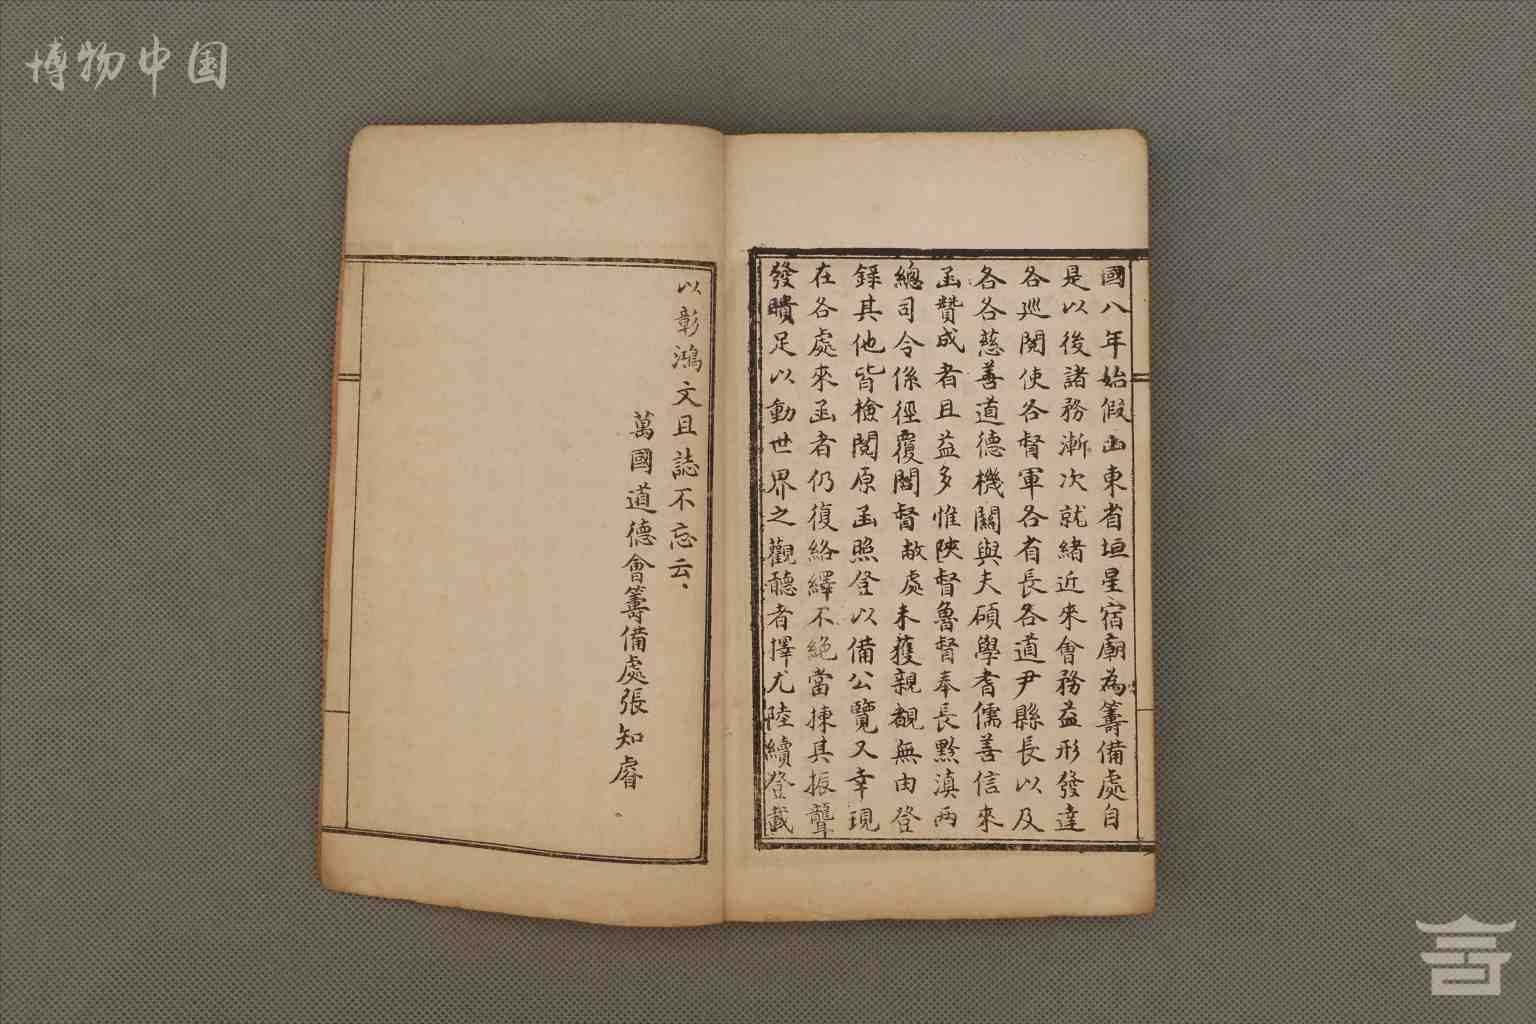 博物中国
國八年始假山東省垣星宿廟為籌備處自
是以後諸務漸次就緒近來會務益形發達
各巡閱使各督軍各省長各道尹縣長以及
各各慈善道德機關與夫碩學耆儒善信來
函贊成者且益多惟陝督魯督奉長黔滇兩
總司令係徑覆閻督敝處未獲親覩無由登
錄其他皆檢閱原函照登以備公覽又幸現
在各處來函者仍復絡繹不絕當揀其振聾
發聵足以動世界之觀聽者擇尤陸續登載
以彰鴻文且誌不忘云
萬國道德會籌備處張知睿